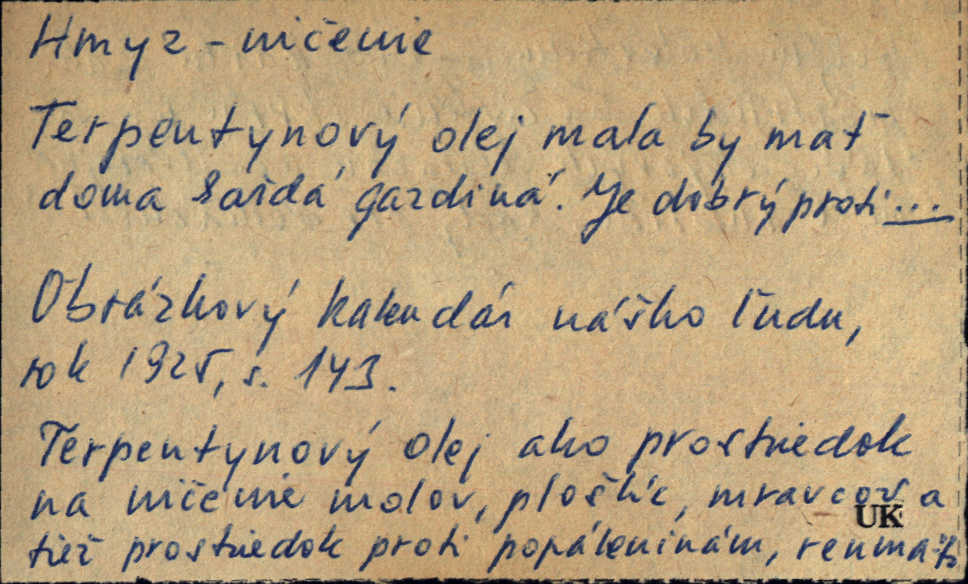 Hmyz - ničenie
Terpentynový olej mala by mať
doma každá gazdiná. Je dobrý proti ...
Obrázkový kalendár nášho ľudu,
rok 1925, s. 143.
Terpentynový olej ako prostriedok
na ničenie molov, ploštíc, mravcov a
UK
tiež prostriedok proti popáleninám,